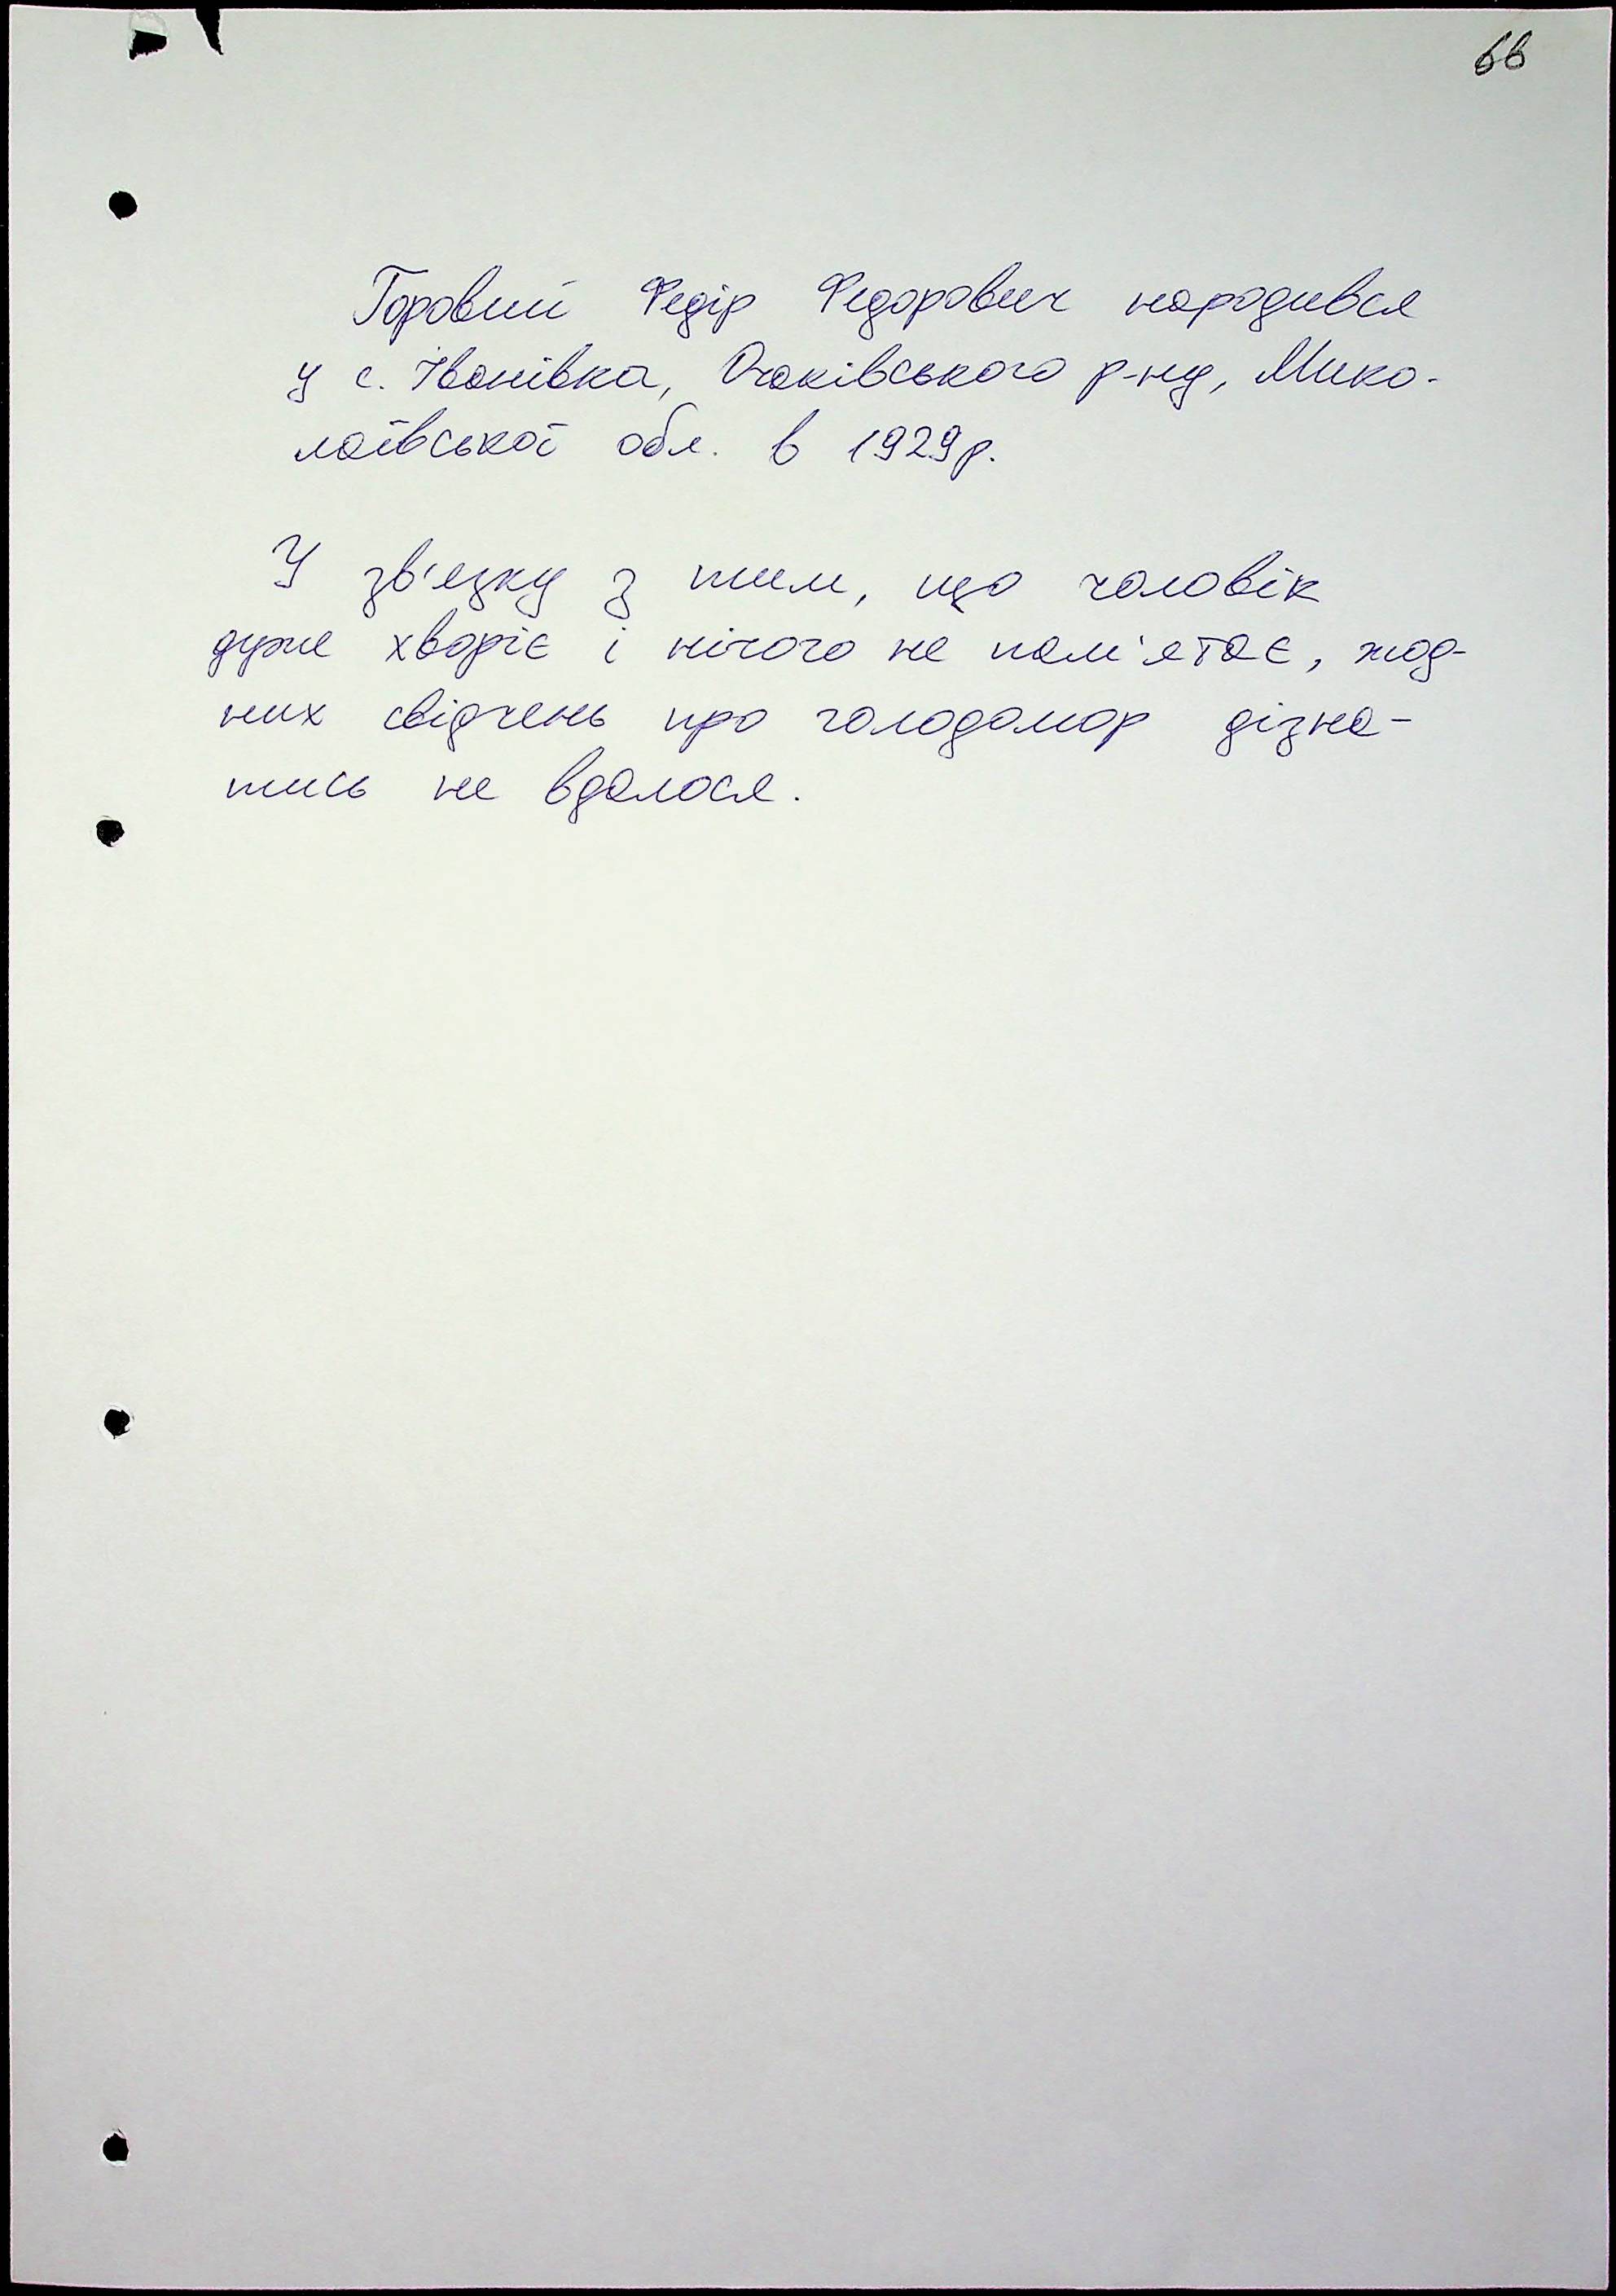 66
Горовий Федір Федорович народився
у с. Іванівка, Очаківського р-ну, Мико-
лаївської обл. в 1929р.
У зв'язку з тим, що чоловік
дуже хворіє і нічого не пам'ятає, жод-
них свідчень про голодомор дізна-
тись не вдалося.